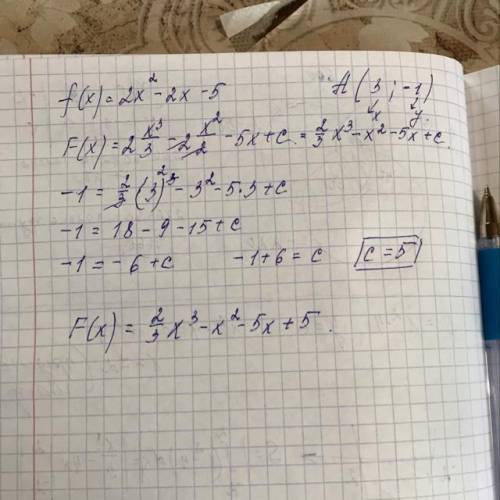 f(x) = 2x² - 2x - 5 A(3; -1)
x y
F(x) = 2 x³/3 - 2 x²/2 - 5x + c = 2/3 x³ - x² - 5x + c.
-1 = 2/3 (3)³ - 3² - 5·3 + c
-1 = 18 - 9 - 15 + c
-1 = -6 + c -1 + 6 = c c = 5
F(x) = 2/3 x³ - x² - 5x + 5.